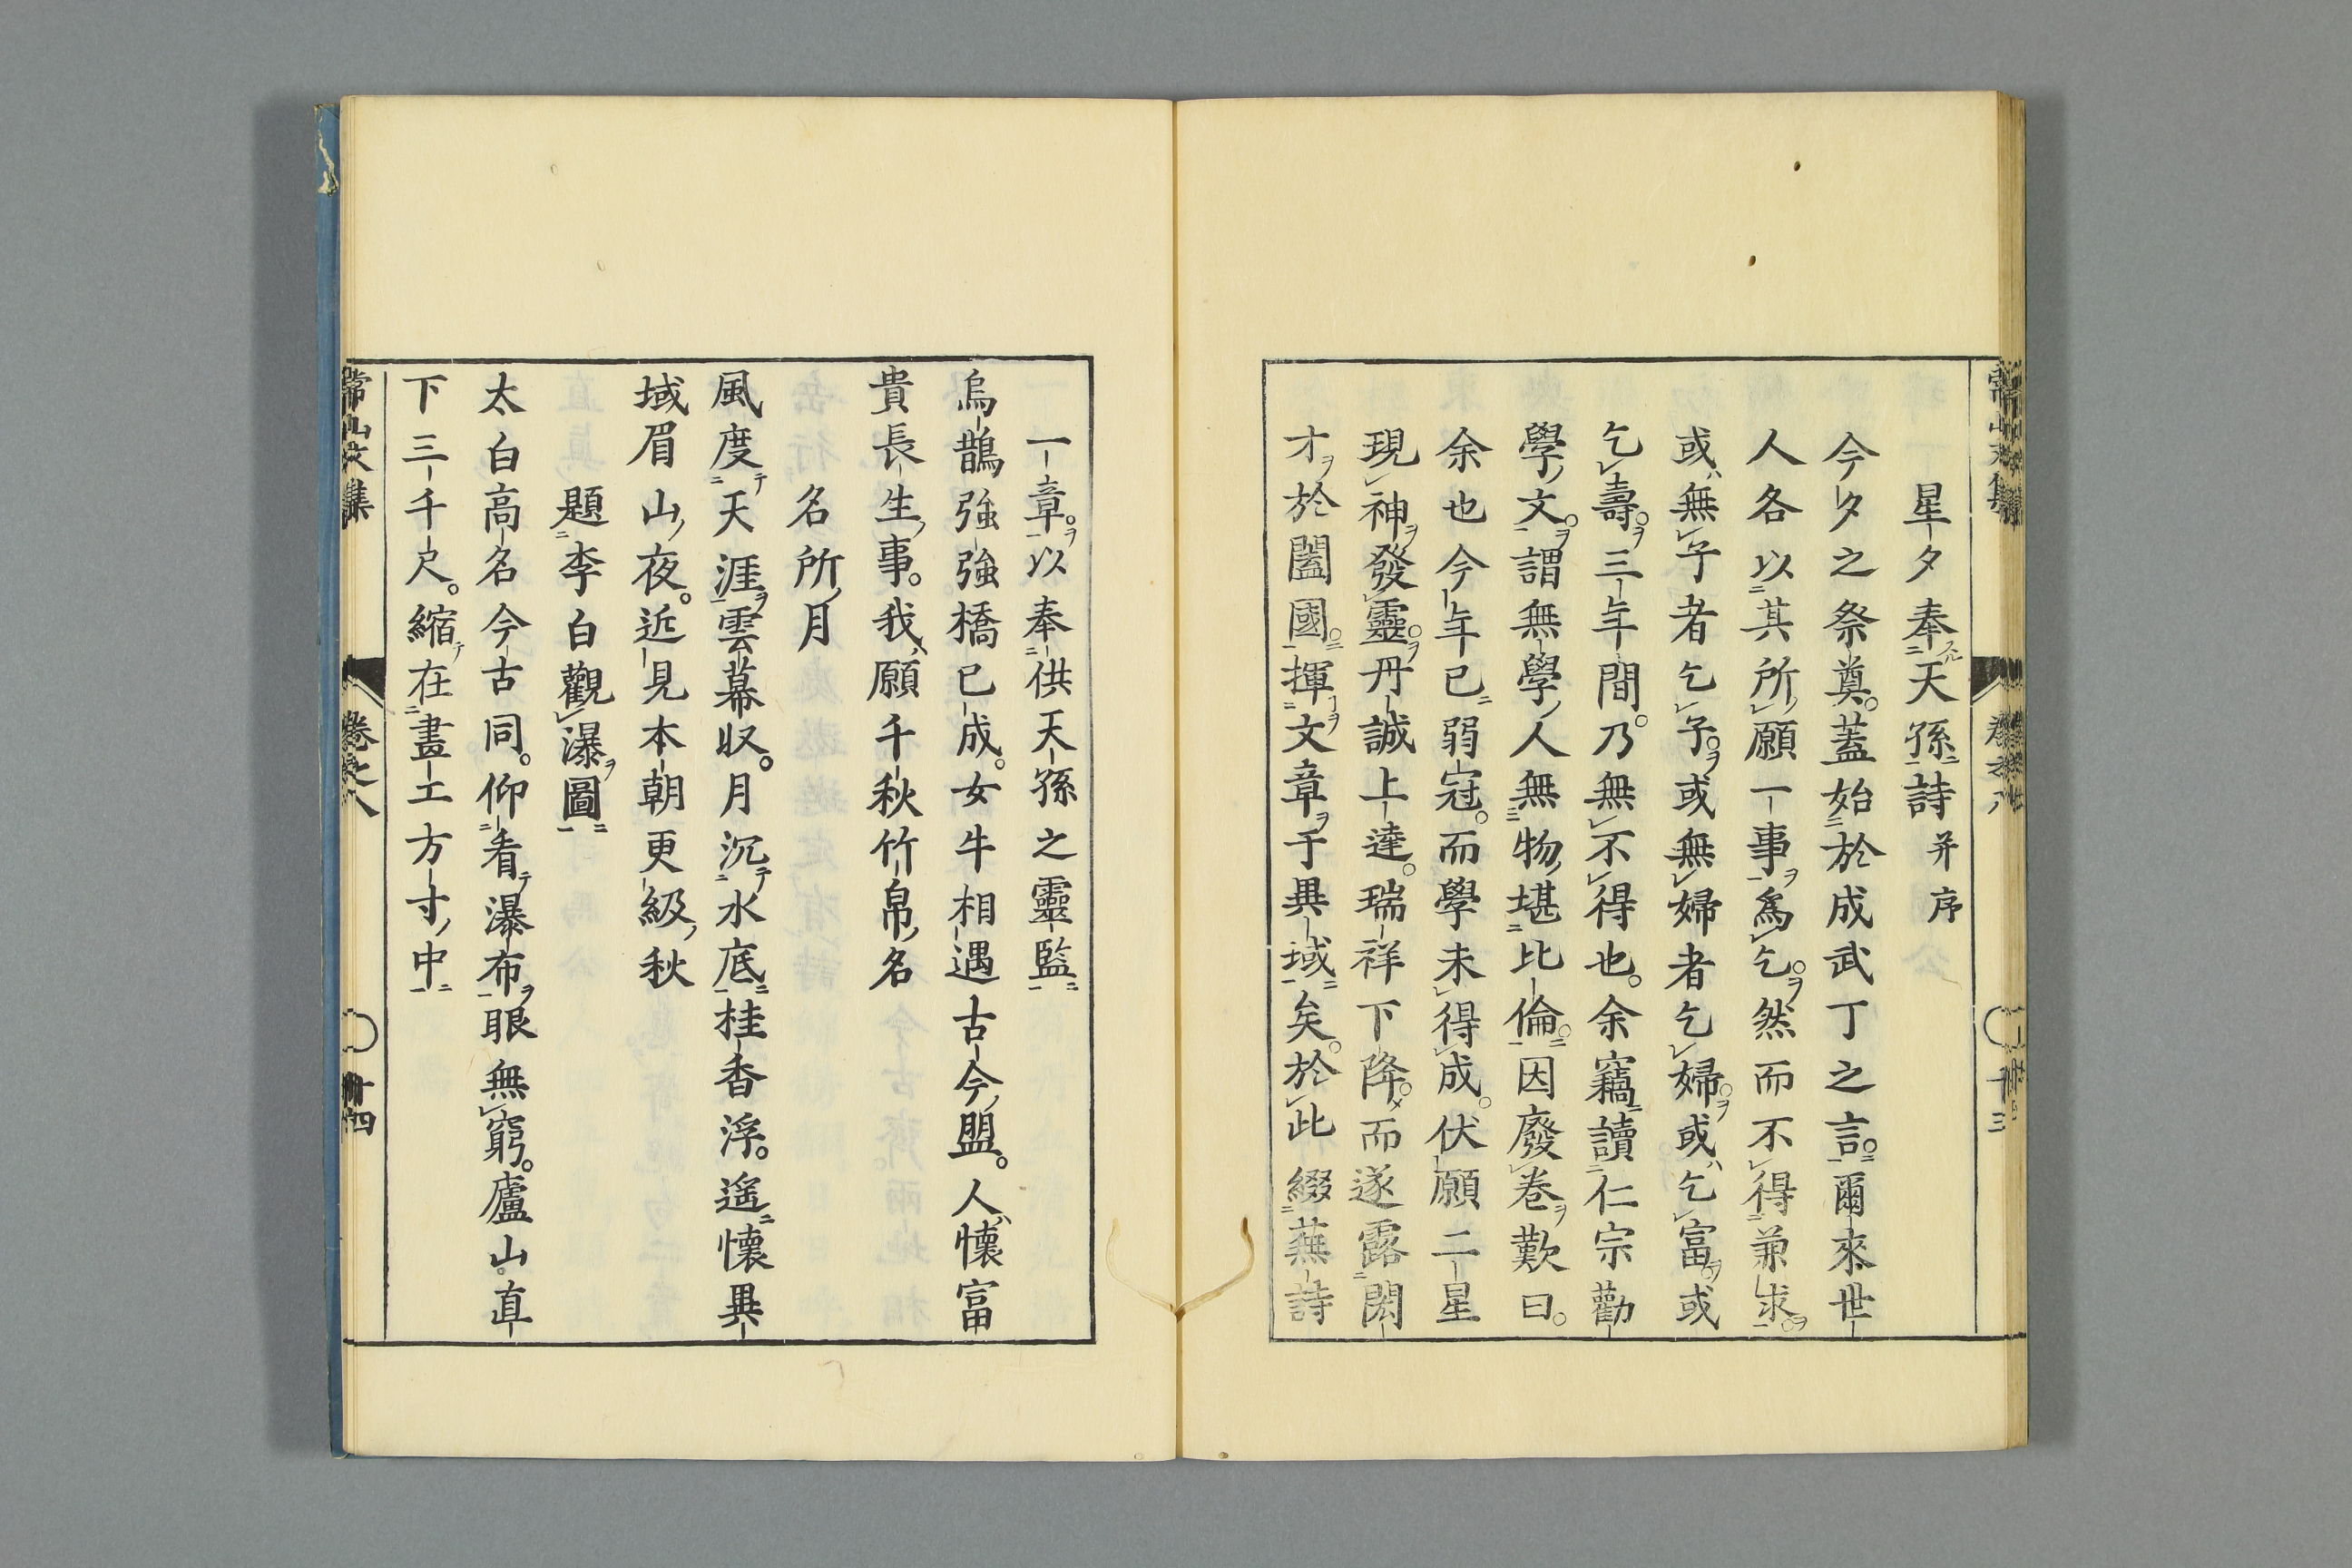 星夕奉天孫詩并序
今夕之祭奠蓋始於成武丁之言爾來世
人各以其所願一事爲乞然而不得兼求
或無子者乞子或無婦者乞婦或乞富或
乞壽三年間乃無不得也余竊讀仁宗勸
學文謂無學人無物堪比倫因廢卷歎曰
余也今年已弱冠而學未得成伏願二星
現神發靈丹誠上達瑞祥下降而遂露閎
才於闔國揮文章于異域矣於此綴蕪詩
一章以奉供天孫之靈監
烏鵲強強橋已成女牛相遇古今盟人懷富
貴長生事我願千秋竹帛名
名所月
風度天涯雲幕収月沉水底桂香浮遙懷異
域眉山夜近見本朝更級秋
題李白觀瀑圖
太白高名今古同仰看瀑布眼無窮廬山直
下三千尺縮在畫工方寸中
常山文集 卷之八 卅四